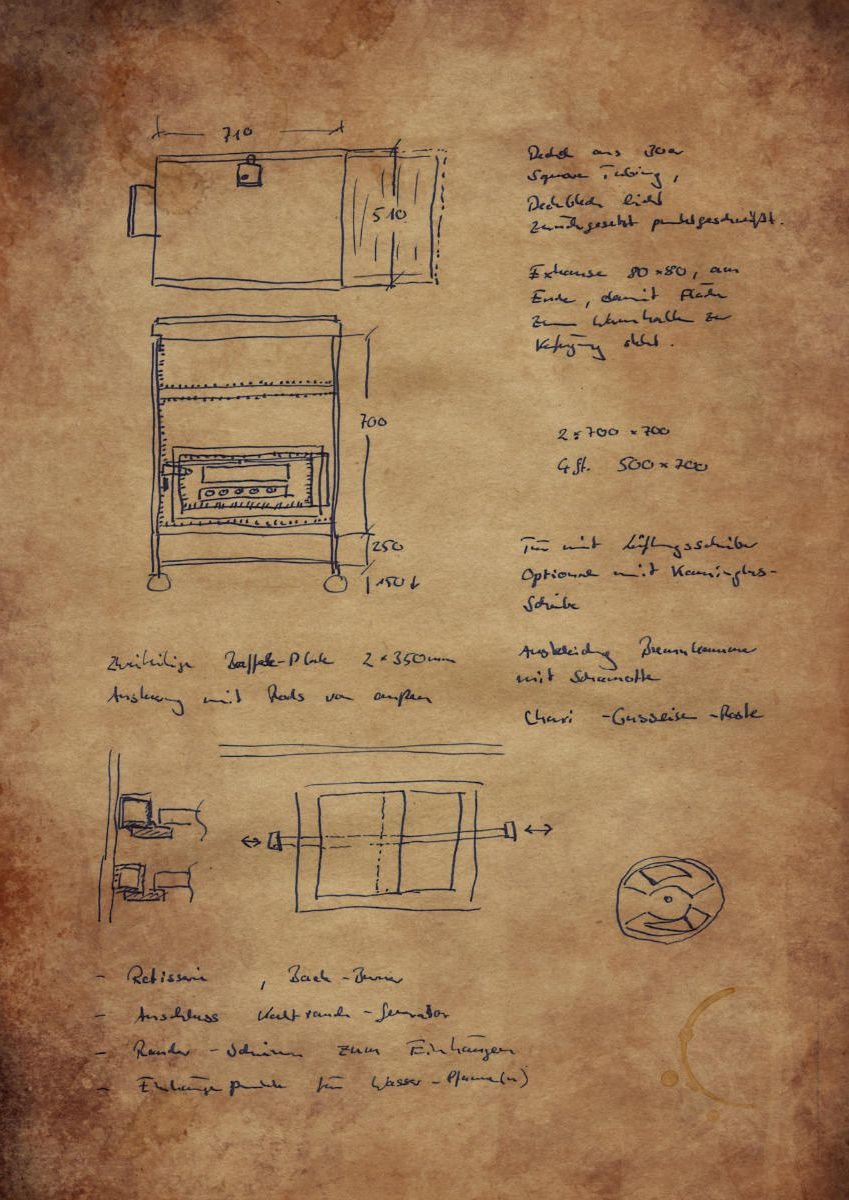 710
510
Deckel aus 30er
Square Tubing,
Deckblech leicht
zurückgesetzt punktgeschweißt.
Exhause 80×80, am
Ende, damit Fläche
zum Warmhalten zur
Verfügung steht.
700
2 × 700 × 700
4 St. 500 × 700
250
150
Tür mit Lüftungsschieber
Optional mit Kaminglas-
Scheibe
Zweiteilige Baffle-Plate 2 × 350mm
mit Rods von außen
Auskleidung Brennkammer
mit Schamotte
Gusseisen-Roste
- Rotisserie, Back-Burner
- Anschluss Kaltrauch-Generator
- Räucher-Schienen zum Einhängen
- Einhängepunkte für Wasser-Pfanne(n)